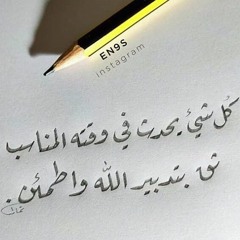 EN9S
instagram
كل شيءٍ يحدث في وقته المناسب
ثق بتدبير الله واطمئن .